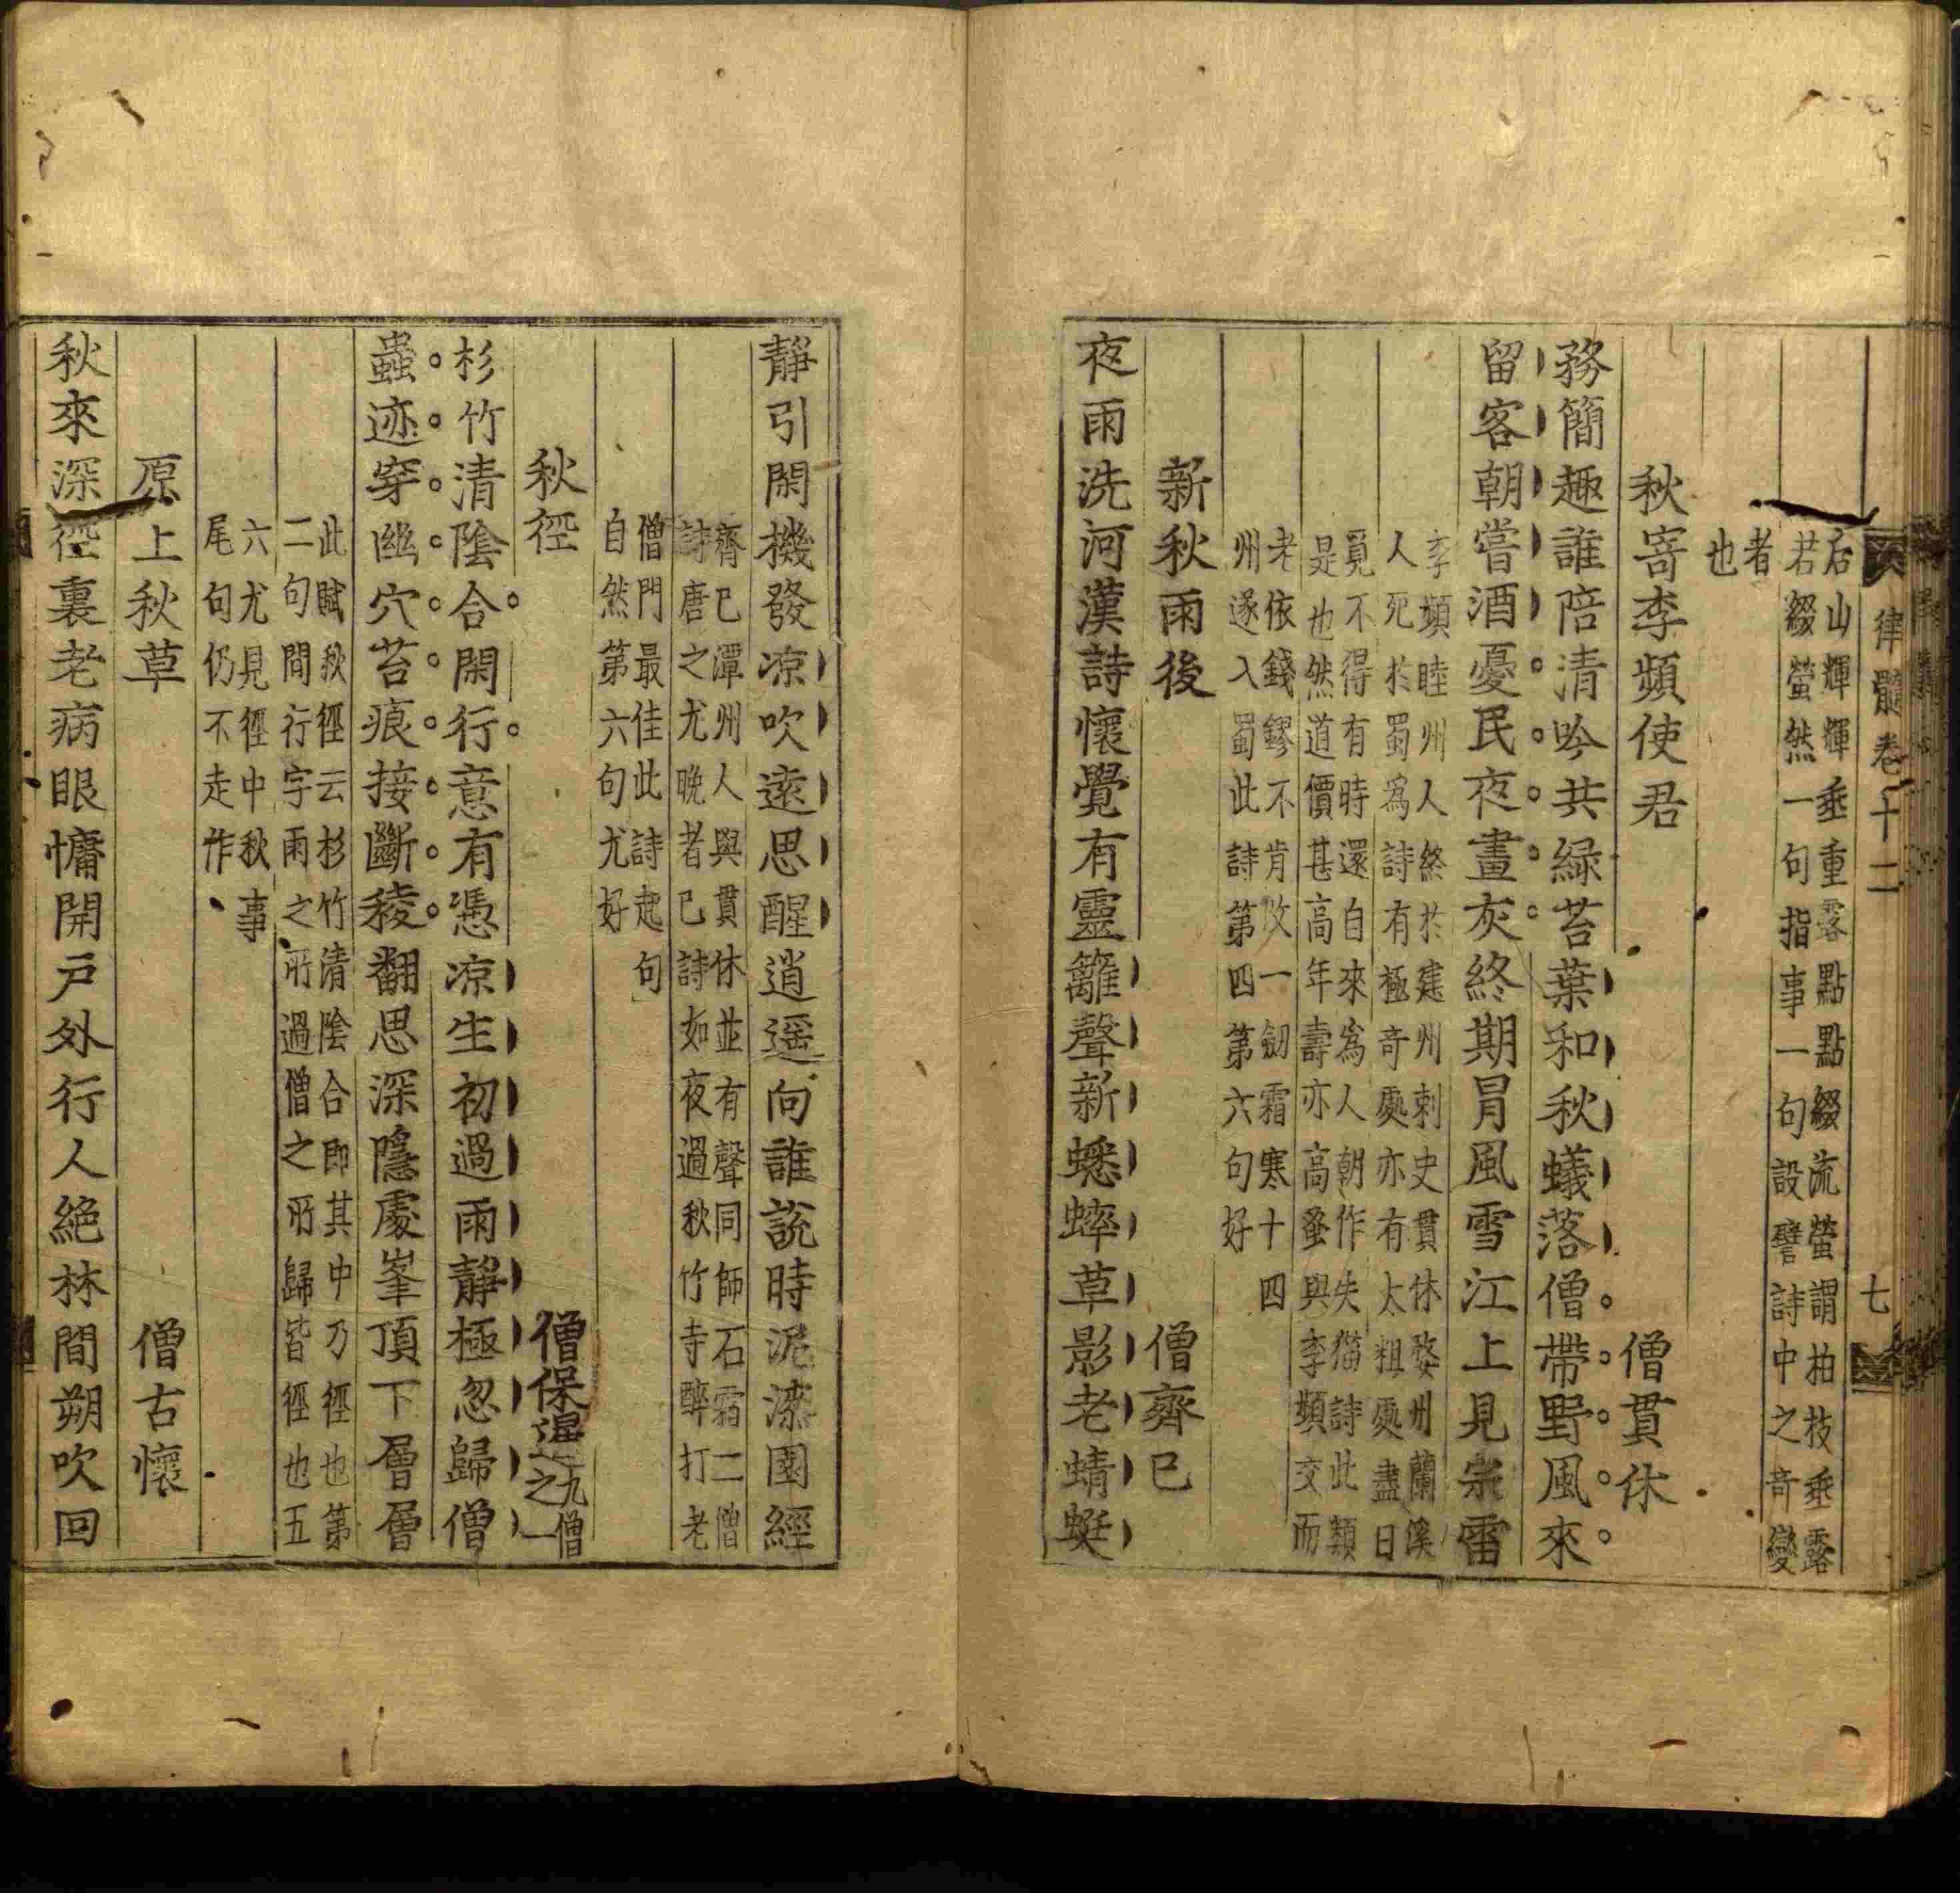 律髓卷十二
七
后山輝輝垂重露點點綴流螢謂柏枝垂露
若綴螢然一句指事一句設譬詩中之竒變
者
也
秋寄李頻使君
僧貫休
務簡趣誰陪清吟共緑苔葉和秋蟻落僧帶野風來
留客朝嘗酒憂民夜畫灰終期冒風雪江上見宗雷
李頻睦州人終於建州刺史貫休婺州蘭溪
人死於蜀爲詩有極竒處亦有太粗處盡日
覓不得有時還自來爲人朝作失猫詩此類
是也然道價甚高年壽亦高蚤與李頻交而
老依錢鏐不肯改一劒霜寒十四
州遂入蜀此詩第四第六句好
新秋雨後
僧齊已
夜雨洗河漢詩懷覺有靈籬聲新蟋蟀草影老蜻蜓
靜引閑機發凉吹遠思醒逍遥向誰說時泥漆園經
齊已潭州人與貫休並有聲同師石霜二僧
詩唐之尤晚者已詩如夜過秋竹寺醉打老
僧門最佳此詩起句
自然第六句尤好
秋徑
僧保暹
九僧
之一
杉竹清隂合閑行意有憑凉生初過雨靜極忽歸僧
蟲迹穿幽穴苔痕接斷稜翻思深隱處峯頂下層層
此賦秋徑云杉竹清隂合即其中乃徑也第
二句間行字雨之所過僧之所歸皆徑也五
六尤見徑中秋事
尾句仍不走作
原上秋草
僧古懷
秋來深徑裏老病眼慵開戸外行人絶林間朔吹回